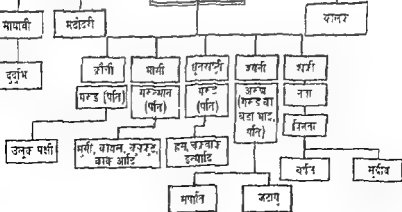 मायावी
मंदोदरी
दुर्दुभि
क्रौंची
भासी
धृतराष्ट्री
श्येनी
शुकी
गरुड (पति)
गरुत्मान
(पति)
गरुड
(पति)
अरुण
(गरुड का
बड़ा भाई,
पति)
नता
विनता
उलूक पक्षी
मुर्गी, वायस, कुक्कुट,
काक आदि
हंस, चक्रवाक
इत्यादि
संपाति
जटायु
सुग्रीव